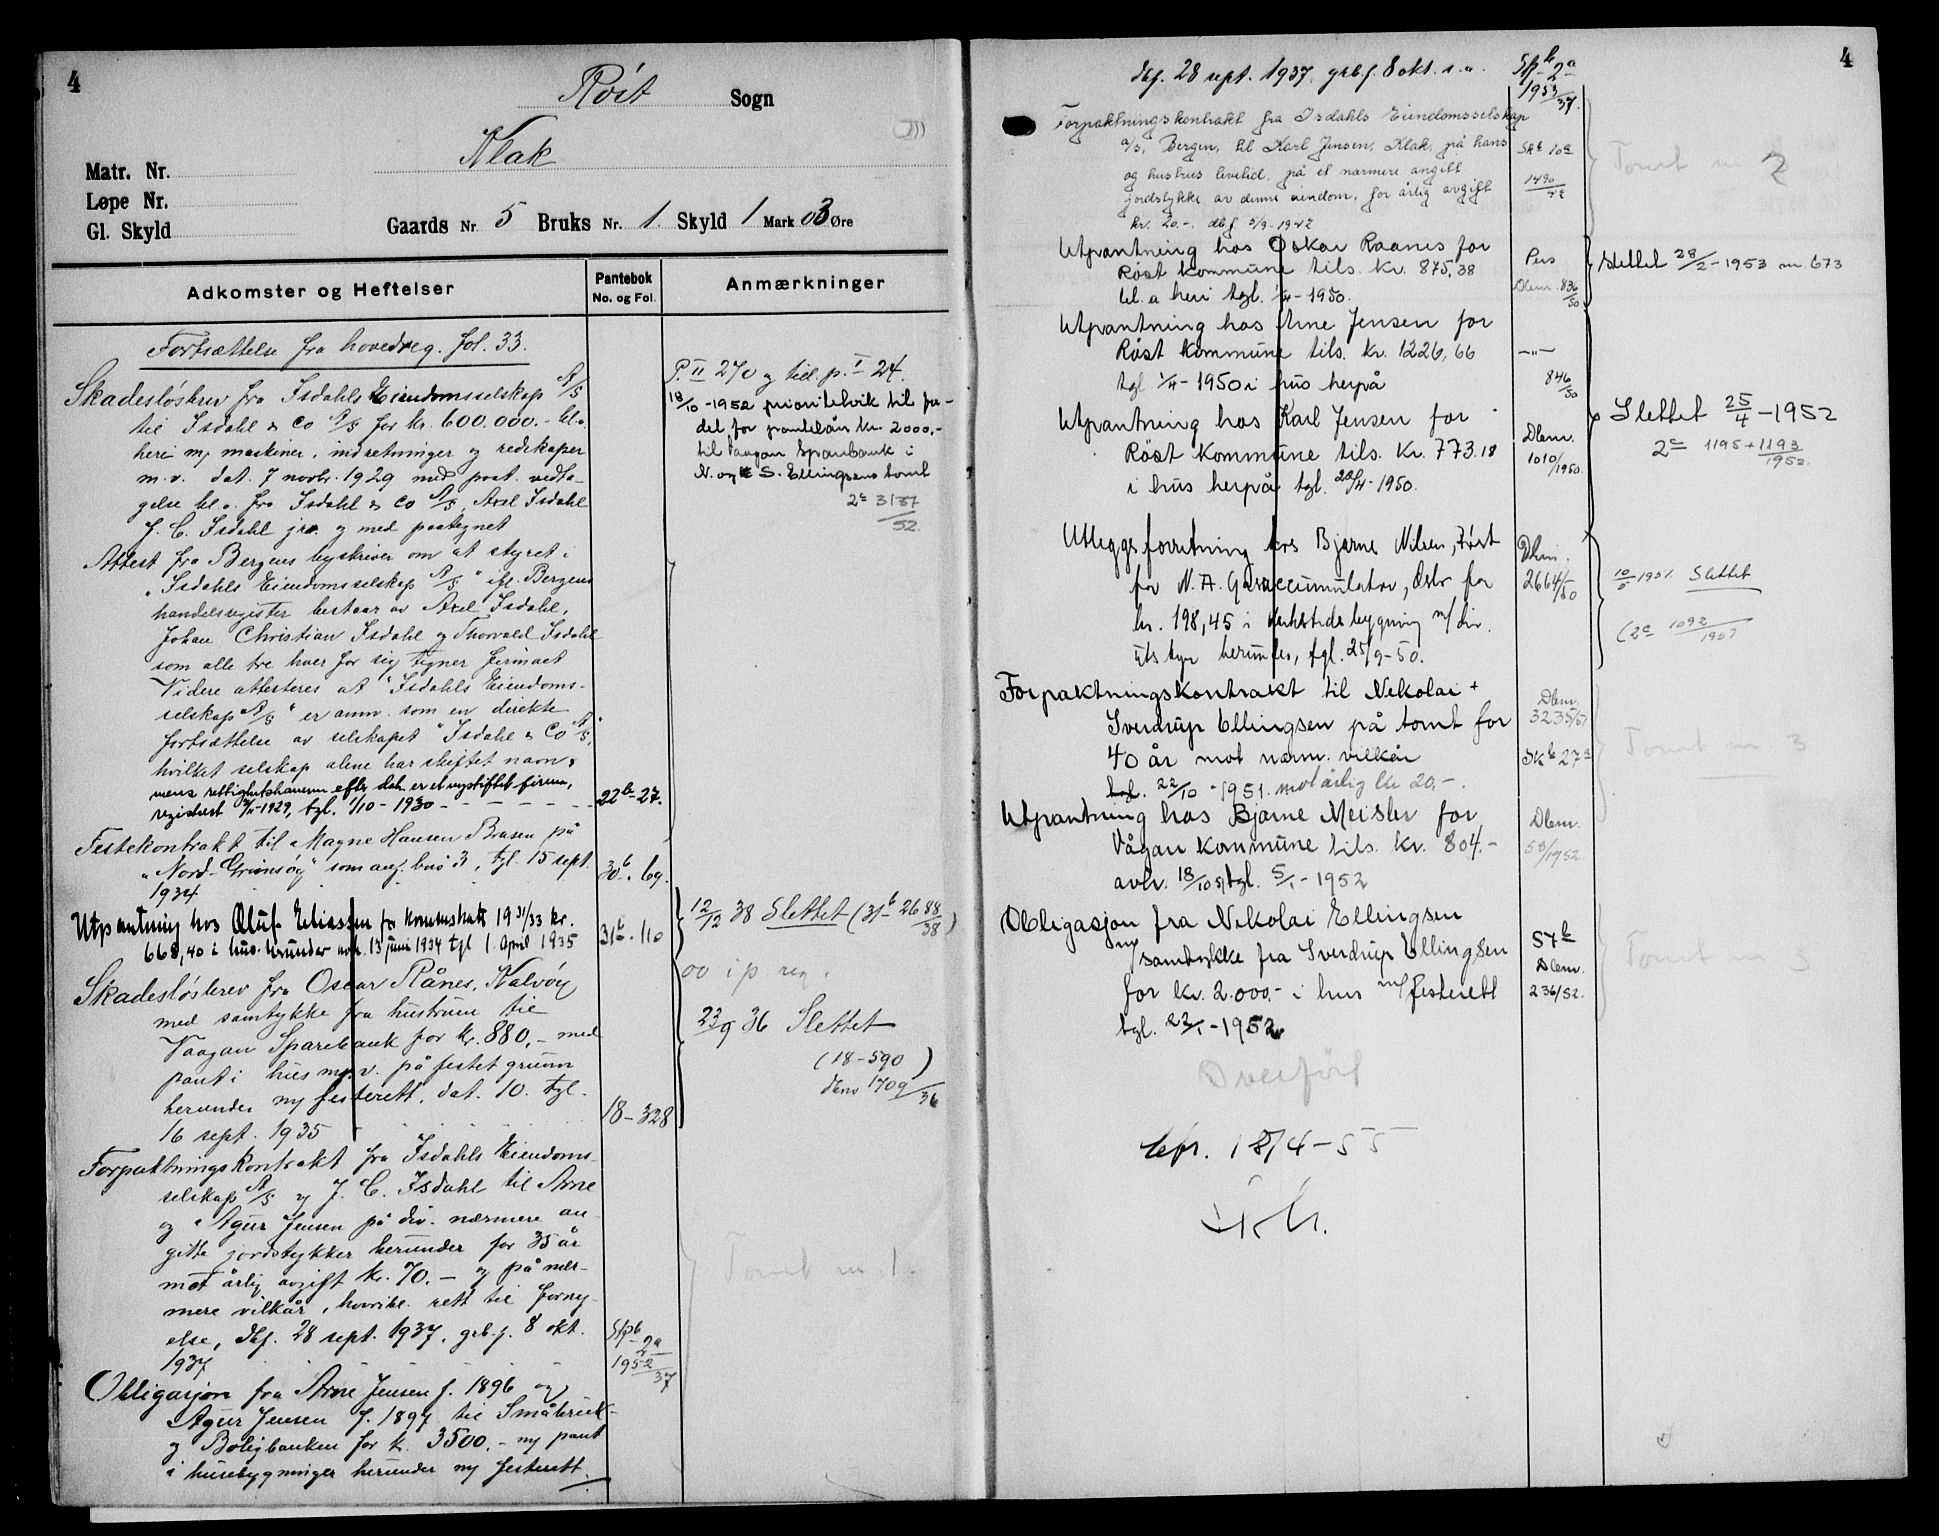 4
Røst Sogn
Klak
Matr. Nr.
Løpe Nr.
Gl. Skyld
Gaards Nr. 5 Bruks Nr. 1. Skyld 1 Mark 03 Øre
Adkomster og Heftelser
Pantebok
No. og Fol.
Anmærkninger
Fortsættelse fra hovedreg. fol. 33.
Skadesløsbrev fra Isdahls Eiendomsselskap A/S
til Isdahl & Co A/S for kr. 600.000.- bl.a.
heri m/ maskiner, indretninger og redskaper
m.v. dat. 7 novbr. 1929 med paat. vedta-
gelse bl.a. fra Isdahl & Co A/S, Axel Isdahl
J. C. Isdahl jr. og med paategnet
Attest fra Bergens byskriver om at styret i
"Isdahls Eiendomsselskap A/S" ifl. Bergens
handelsregister bestaar av Axel Isdahl,
Johan Christian Isdahl og Thorvald Isdahl
som alle tre hver for sig tegner firmaet
Videre attesteres at "Isdahls Eiendoms-
selskap A/S" er anm. som en direkte
fortsættelse av selskapet "Isdahl & Co A/S",
hvilket selskap alene har skiftet navn,
mens rettighetshaveren efter dok. er et nystiftet firma,
registrert 9/11-1929, tgl. 1/10 - 1930 - - - - - -
22b-27.
P. II 270 og till. p. I 24.
18/10-1952 prioritetvik til for-
del for pantelån kr. 2000.-
til Vaagan Sparebank i
N. og S. Ellingsens tomt
2c 3137/52.
Festekontrakt til Magne Hansen Brusen på
"Nord-Grimsøy" som ang. bnr 3, tgl. 15 sept.
1934
30b. 69.
Utpantning hos Oluf Eliassen for kommuneskatt 1931/33 kr.
668,40 i hus. herunder avh. 13 juni 1934 tgl 1. April 1935
31b. 110
12/12 38 Slettet (31b 2688/38)
Skadesløsbrev fra Oscar Rånes, Kalvøy
med samtykke fra hustruen til
Vaagan Sparebank for kr. 880,- med
pant i hus m.v. på festet grunn
herunder m/ festerett, dat. 10. tgl.
16 sept. 1935
18-328
oo i p reg.
23/9 36 Slettet
(18-590)
dbno 1709/36
Forpaktningskontrakt fra Isdahls Eiendoms-
selskap A/S og J. C. Isdahl til Arne
og Agur Jensen på div. nærmere an-
gitte jordstykker herunder for 35 år
mot årlig avgift kr. 70.- og på nær-
mere vilkår, hvoribl. rett til forny-
else, dbf. 28 sept. 1937, grb.f. 8 okt.
1937
Skpb
2a
1952/37
Tomt nr. 1.
Obligasjon fra Arne Jensen f. 1896 og
Agur Jensen f. 1897 til Småbruk-
og Boligbanken for kr. 3500.- m/ pant
i husebygninger herunder m/ festerett.
4
dbf. 28 sept. 1937. grb.f. 8 okt. s.a.
Skpb 2a
1953/37.
Forpaktningskontrakt fra Isdahls Eiendomsselskap
A/S, Bergen, til Karl Jensen, Klak, på hans
og hustrus levetid, på et nærmere angitt
jordstykke av denne eiendom, for årlig avgift
kr. 20.-. dbf. 5/9-1942
Skb 10a
1490/42
Tomt nr 2
Utpantning hos Oskar Raanes for
Røst kommune tils. kr. 875,38
bl. a heri tgl. 1/4-1950.
Pers
Dbnr. 836/50
Slettet 28/2-1953 nr. 673
Utpantning hos Arne Jensen for
Røst kommune tils. kr. 1226,66
tgl 1/4-1950 i hus herpå
—"—
846/50
Utpantning hos Karl Jensen for
Røst kommune tils. kr. 773.18
i hus herpå tgl. 20/4-1950.
Dbnr.
1010/1950.
Slettet 25/4-1952
2c 1195+1193/1952.
Utleggsforretning hos Bjarne Nilsen, Røst
for N. A. Gassaccumulator, Oslo for
kr. 198,45 i verkstedbygning m/ div.
utstyr herunder, tgl. 25/9-50.
Dbnr.
2664/50
10/5 1951 Slettet
(2c 1092/1951
Forpaktningskontrakt til Nikolai +
Sverdrup Ellingsen på tomt for
40 år mot nærm. vilkår
tgl. 22/10-1951. mot årlig kr 20,-.
Dbnr.
3235/51
Skb 27a
Tomt nr 3
Utpantning hos Bjarne Meisler for
Vågan kommune tils. kr. 804.-
avh. 18/10 51 tgl. 5/1-1952
Dbnr.
58/1952
Obligasjon fra Nikolai Ellingsen
m/ samtykke fra Sverdrup Ellingsen
for kr. 2.000,- i hus m/ festerett
tgl. 22/1-1952.
57b
Dbnr.
236/52.
Tomt nr 3
Overført
18/4-55